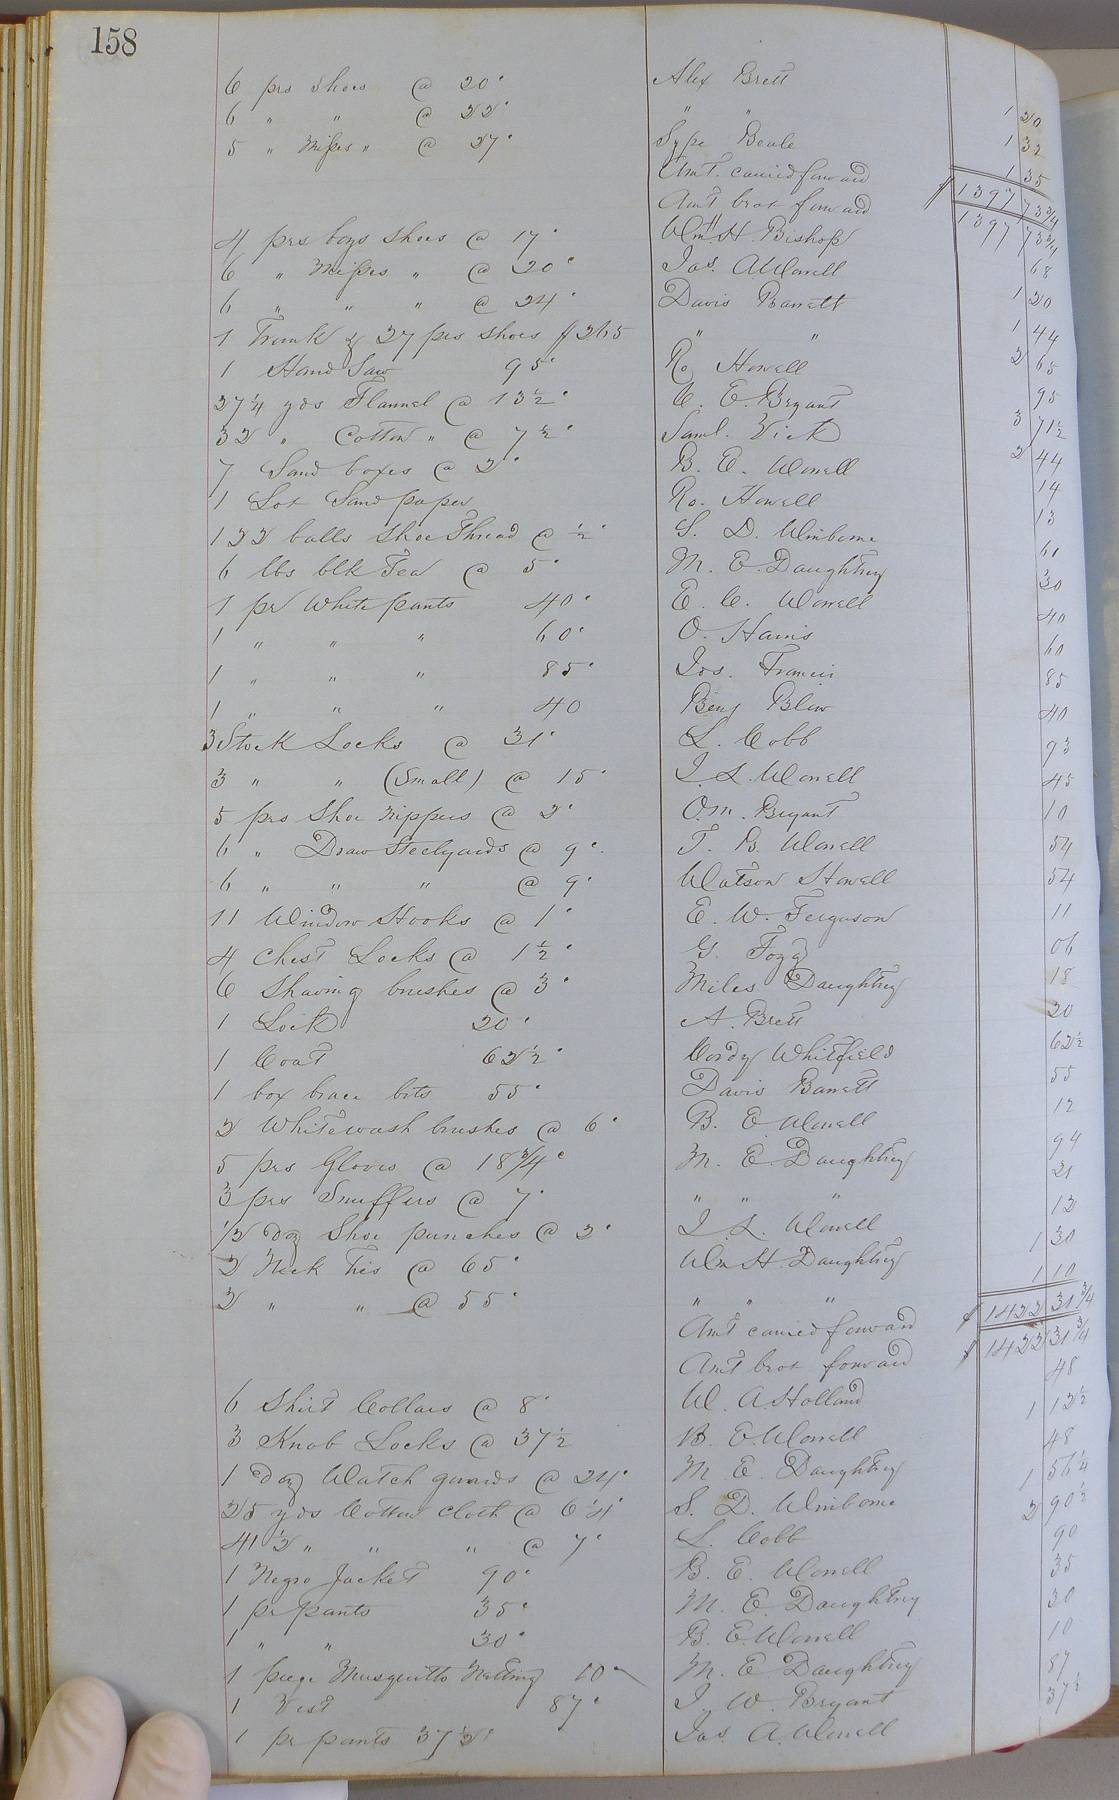 158
6 prs Shoes @ 20c Alex Brett 1 20
6 " " @ 22c " " 1 32
5 " Misses " @ 27c Sype Beale 1 35
Amt. carried forward $1397 73 3/4
Amt brot forward 1397 73 3/4
4 prs boys Shoes @ 17c Wm H. Bishop 68
6 " Misses " @ 20c Jas. A Worrell 1 20
6 " " " @ 24c Davis Barrett 1 44
1 Trunk & 27 prs shoes $265 " " 2 65
1 Hand Saw 95c Ro Howell 95
27 1/4 yds Flannel @ 13 1/2c C. E. Bryant 3 71 1/2
32 " Cotton " @ 7 1/2c Saml. Vick 2 44
7 Sand boxes @ 2c B. E. Worrell 14
1 Lot Sand paper Ro. Howell 13
122 balls Shoe Thread @ 1/2c S. D. Winborne 61
6 lbs blk Tea @ 5c M. E. Daughtrey 30
1 pr White pants 40c E. C. Worrell 40
1 " " " 60c O. Harris 60
1 " " " 85c Jos. Francis 85
1 " " " 40 Benj Blow 40
3 Stock Locks @ 31c L. Cobb 93
3 " " (Small) @ 15c J. L. Worrell 45
5 prs Shoe Nippers @ 2c O. M. Bryant 10
6 " Draw Steelyards @ 9c. T. B. Worrell 54
6 " " " @ 9c Watson Howell 54
11 Window Hooks @ 1c E. W. Ferguson 11
4 Chest Locks @ 1 1/2c G. Fogg 06
6 Shaving brushes @ 3c Miles Daughtrey 18
1 Lock 20c A. Brett 20
1 Coat 62 1/2c Cordy Whitfield 62 1/2
1 box brace bits 55c Davis Barrett 55
2 Whitewash brushes @ 6c B. E Worrell 12
5 prs Gloves @ 18 3/4c M. E. Daughtrey 94
3 prs Snuffers @ 7c " " " 21
1/2 doz Shoe punches @ 2c J. L. Worrell 12
2 Neck Ties @ 65c Wm H. Daughtrey 1 30
2 " " @ 55c " " " 1 10
Amt carried forward $1422 31 3/4
Amt brot forward $1422 31 3/4
6 Shirt Collars @ 8c W. A. Holland 48
3 Knob Locks @ 37 1/2 B. E. Worrell 1 12 1/2
1 doz Watch guards @ 24c M. E. Daughtrey 48
25 yds Cotton Cloth @ 6 1/4c S. D. Winborne 1 56 1/4
41 1/2 " " " @ 7c L. Cobb 2 90 1/2
1 Negro Jacket 90c B. E. Worrell 90
1 pr pants 35c M. E. Daughtrey 35
1 " " 30c B. E. Worrell 30
1 piege Musquitto Netting 10 M. E Daughtrey 10
1 Vest 87c J. W. Bryant 87
1 pr pants 37 1/2c Jas A. Worrell 37 1/2